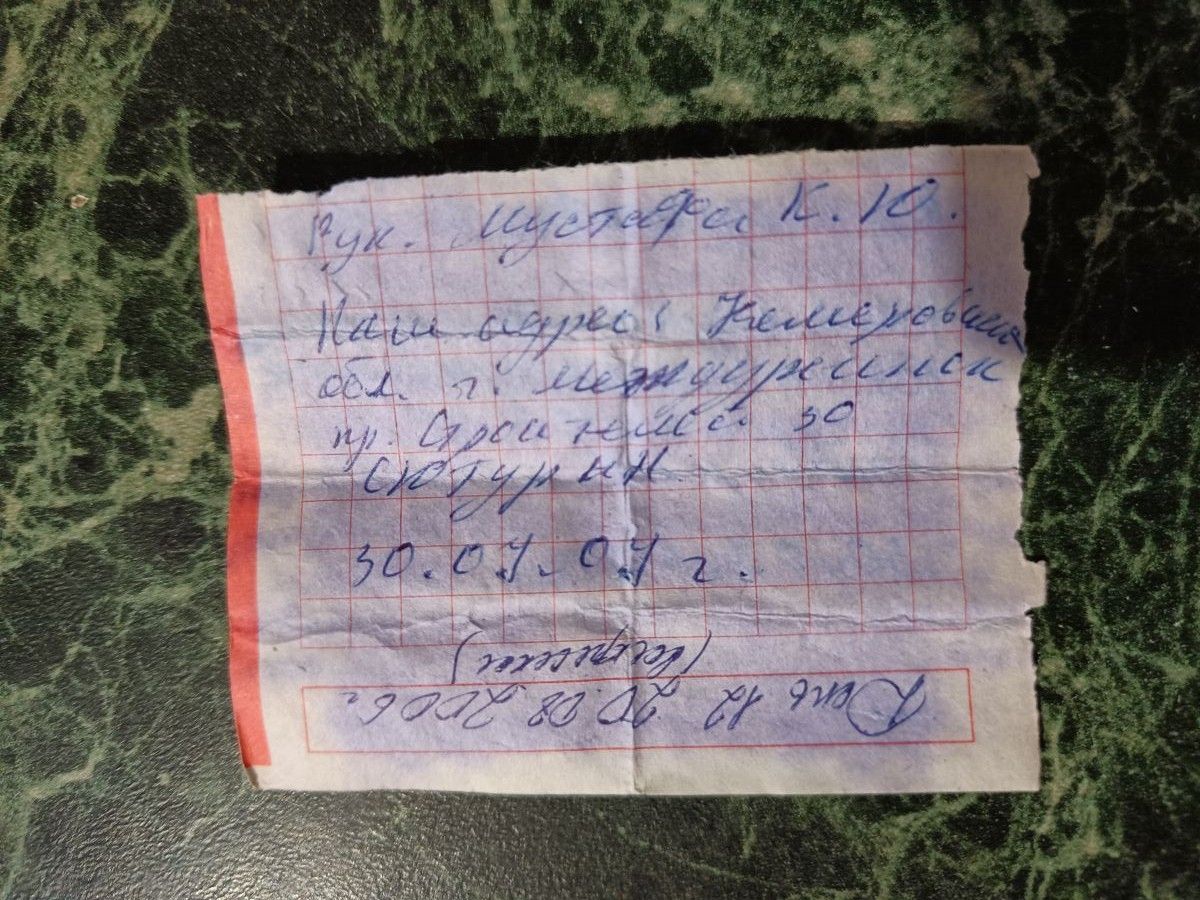 Рук. Мустафа К.Ю.
Наш адрес: Кемеровская
обл. г. Междуреченск
пр. Строителей 30
СЮТУР КН
30.07.07 г.
День 12 20.08.2006г
(воскресенье)